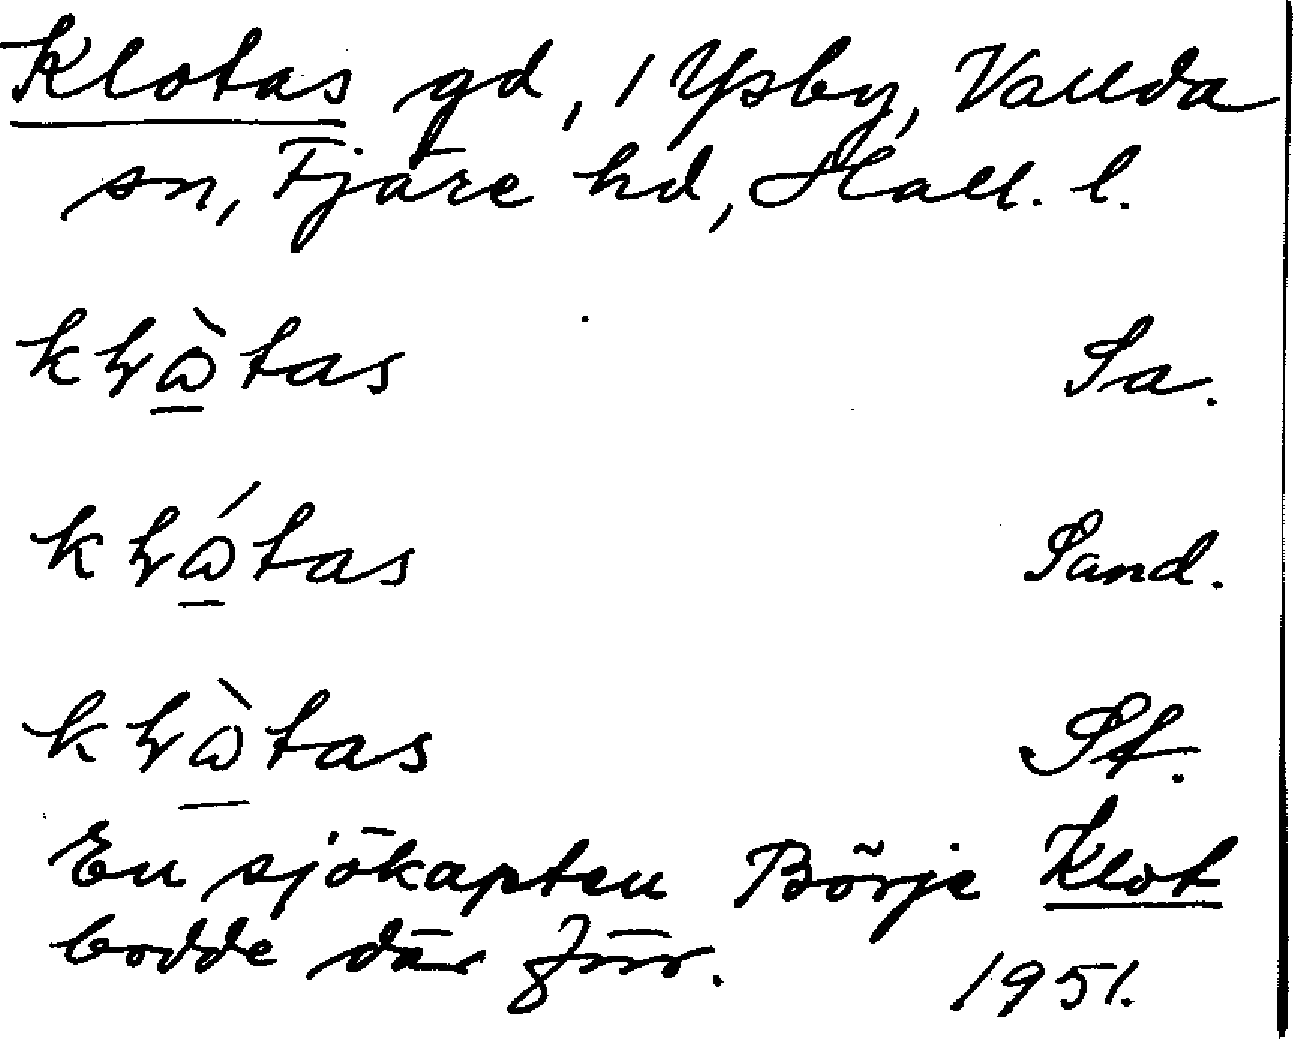 Klotas gd, 1 Ysby, Vallda
sn, Fjäre hd, Hall. l.
kɫɷ̀tas Sa.
kɫɷ́tas Sand.
kɫɷ̀tas St.
En sjökapten Börje Klot
bodde där förr. 1951.